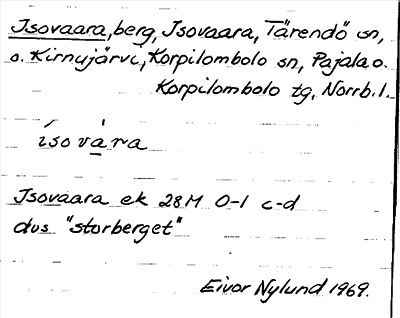 Isovaara, berg, Isovaara, Tärendö sn,
o. Kirnujärvi, Korpilombolo sn, Pajala o.
Korpilombolo tg, Norrb. l.
ísovára
Isovaara ek 28M 0-1 c-d
dvs "storberget"
Eivor Nylund 1969.